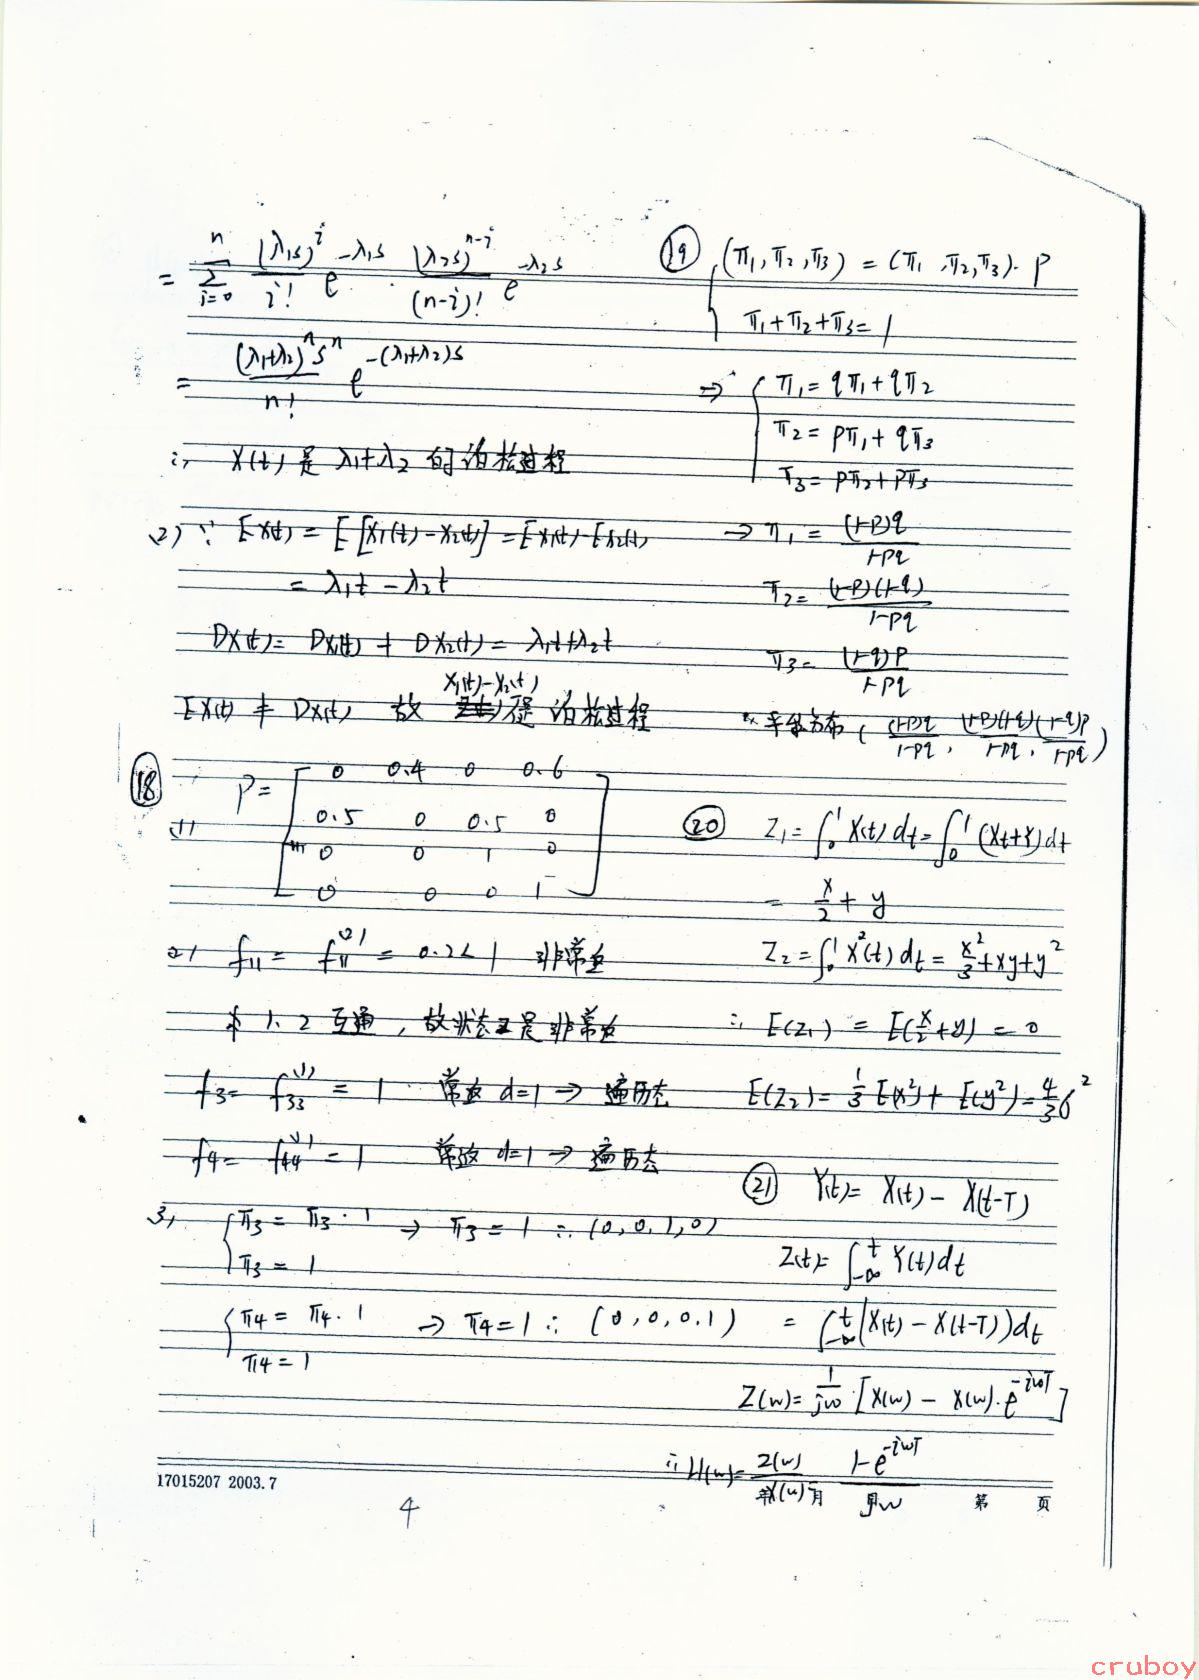 = \sum_{i=0}^{n} \frac{(λ₁s)^i}{i!} e^{-λ₁s} · \frac{(λ₂s)^{n-i}}{(n-i)!} e^{-λ₂s}
= \frac{(λ₁+λ₂)^n s^n}{n!} e^{-(λ₁+λ₂)s}
∴ X(t) 是 λ₁+λ₂ 的泊松过程
2) ∵ EX(t) = E[X₁(t) - X₂(t)] = EX₁(t) - EX₂(t)
= λ₁t - λ₂t
DX(t) = DX₁(t) + DX₂(t) = λ₁t + λ₂t
X₁(t) - X₂(t)
EX(t) ≠ DX(t) 故 泊松过程
⑱
1) P = [0 0.4 0 0.6
0.5 0 0.5 0
0 0 1 0
0 0 0 1]
2) f₁₁ = f₁₁^{(2)} = 0.2 < 1 非常返
1、2 互通，故状态2是非常返
f₃ = f₃₃^{(1)} = 1 常返 d=1 → 遍历态
f₄ = f₄₄^{(1)} = 1 常返 d=1 → 遍历态
3) { π₃ = π₃·1 → π₃ = 1 ∴ (0,0,1,0)
π₃ = 1
{ π₄ = π₄·1 → π₄ = 1 ∴ (0,0,0,1)
π₄ = 1
⑲ { (π₁,π₂,π₃) = (π₁,π₂,π₃)·P
π₁+π₂+π₃ = 1
⇒ { π₁ = qπ₁+qπ₂
π₂ = pπ₁+qπ₃
π₃ = pπ₂+pπ₃
→ π₁ = \frac{(1-p)q}{1-pq}
π₂ = \frac{(1-p)(1-q)}{1-pq}
π₃ = \frac{(1-q)p}{1-pq}
∴ 平稳分布 (\frac{(1-p)q}{1-pq}, \frac{(1-p)(1-q)}{1-pq}, \frac{(1-q)p}{1-pq})
⑳ Z₁ = ∫₀¹ X(t)dt = ∫₀¹ (Xt+Y)dt
= \frac{x}{2} + y
Z₂ = ∫₀¹ X²(t)dt = \frac{x²}{3} + xy + y²
∴ E(Z₁) = E(\frac{x}{2}+y) = 0
E(Z₂) = \frac{1}{3}E(x²) + E(y²) = \frac{4}{3}σ²
㉑ Y(t) = X(t) - X(t-T)
Z(t) = ∫_{-∞}^{t} Y(t)dt
= ∫_{-∞}^{t} (X(t) - X(t-T))dt
Z(w) = \frac{1}{jw}·[X(w) - X(w)·e^{-jwT}]
∴ H(w) = \frac{Z(w)}{X(w)} = \frac{1-e^{-jwT}}{jw}
17015207 2003.7
年 月 日 第 页
4
cruboy